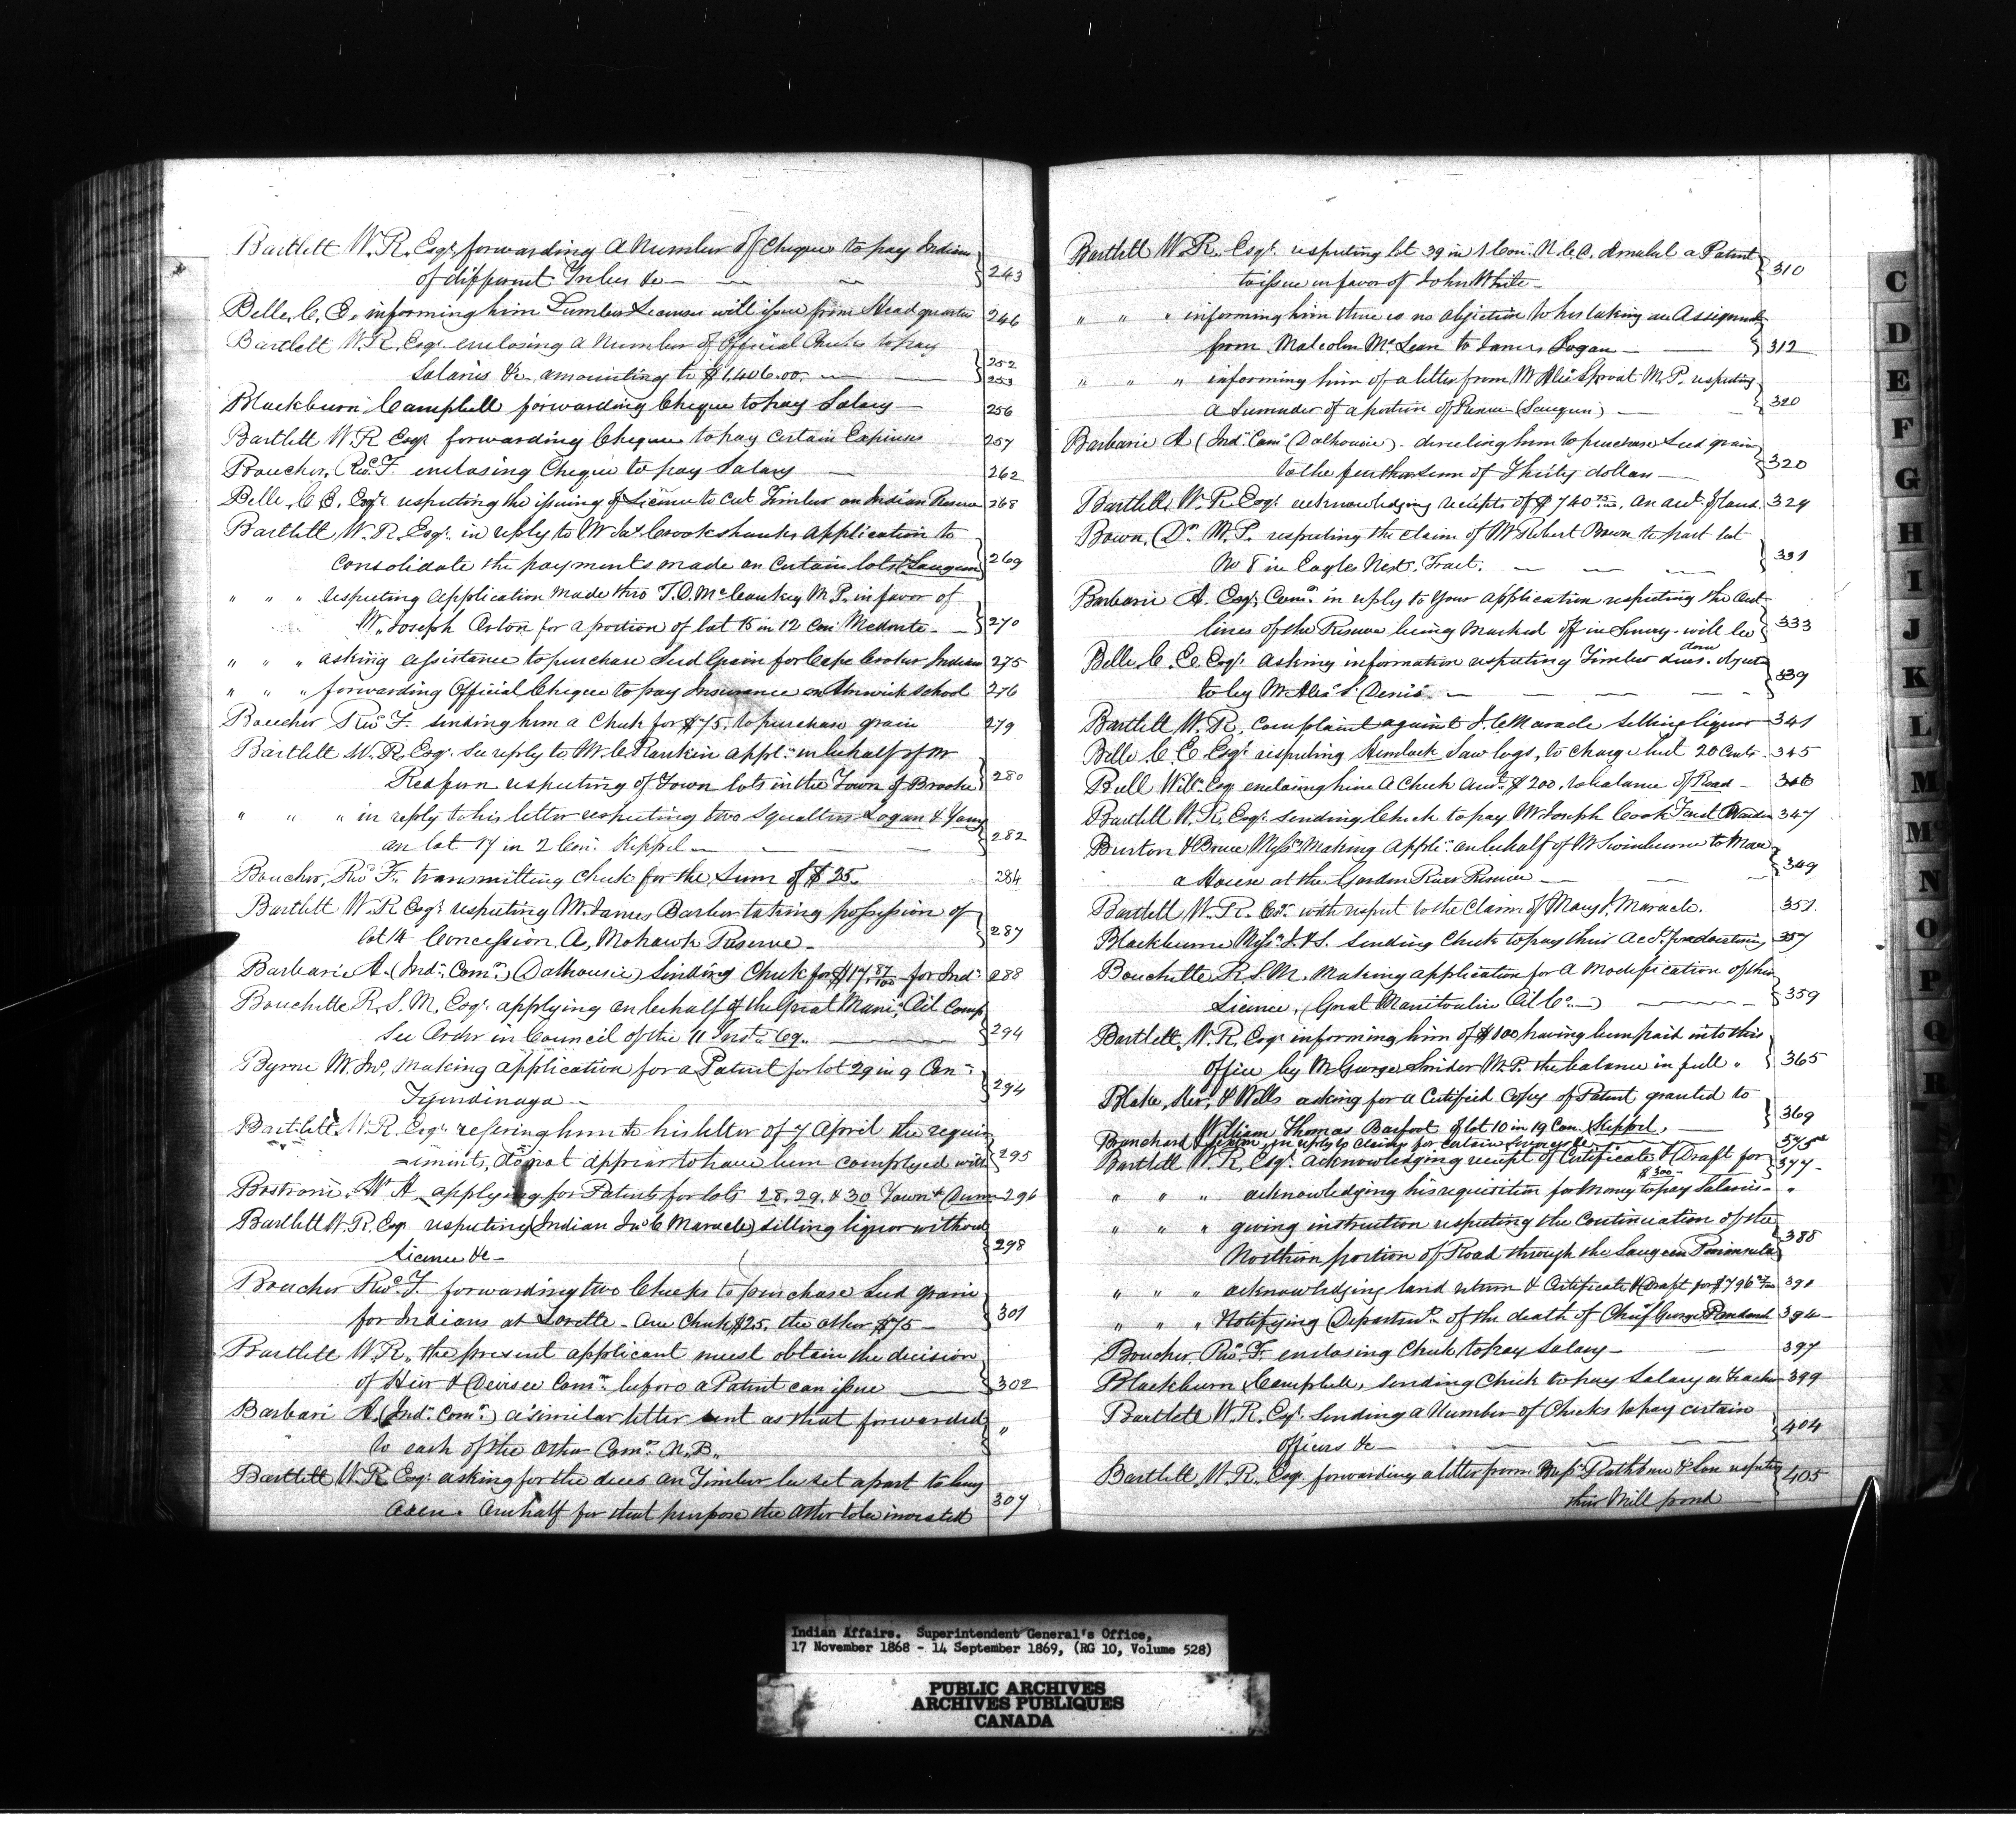 Bartlett W. R. Esqr. forwarding a Number of Cheques to pay Indians
of different Tribes &c — 243
Belle, C. E. informing him Lumber Licenses will issue from Head quarters 246
Bartlett W. R. Esqr. enclosing a Number of Official Checks to pay
Salaries &c amounting to $1,406.00. — 252
253
Blackburn Campbell forwarding Cheque to pay Salary — 256
Bartlett W. R. Esqr. forwarding Cheques to pay certain Expenses 257
Boucher, Revd. F. enclosing Cheque to pay Salary — 262
Belle, C. E. Esqr. respecting the issuing of License to cut Timber on Indian Reserve 268
Bartlett, W. R. Esqr. in reply to Mr Jas. Crookshanks application to
consolidate the payments made on certain lots (Saugeen) 269
" " " respecting application made thro T. O. McConkey M.P. in favor of
Mr. Joseph Aston for a portion of lot 15 in 12 Con: Medonte — 270
" " " asking assistance to purchase Seed Grain for Cape Croker Indians 275
" " " forwarding Official Cheque to pay Insurance on Alnwick School 276
Boucher Revd. F. sending him a Check for $75, to purchase grain 279
Bartlett W. R. Esqr. See reply to Mr. C. Rankin appln. in behalf of Mr
Redfern respecting of Town lots in the Town of Brooke 280
" " " in reply to his letter respecting two Squatters Logan &
on lot 17 in 2 Con: Keppel — 282
Boucher, Revd. F. transmitting Check for the Sum of $25. 284
Bartlett W. R. Esqr. respecting Mr. James Barber taking possession of
lot 14 Concession, A, Mohawk Reserve — 287
Barbarie A. (Indn. Comr.) (Dalhousie) Sending Check for $17 87/100 for Inds. 288
Bouchette R. S. M. Esqr. applying on behalf of the Great Mani: Oil Comp
See Order in Council of the 11 Inst. 69. — 294
Byrne Mr. Jno. making application for a Patent for lot 29 in 9 Con:
Tyendinaga — 294
Bartlett W. R. Esqr. refering him to his letter of 7 April the requir
-ements, do not appear to have been complyed with 295
Bostrom, Mr A. applying for Patents for lots 28, 29, & 30 296
Bartlett W. R. Esqr. respecting (Indian Jno C Maracle) selling liquor without
license &c — 298
Boucher Revd. F. forwarding two Checks to purchase Seed grain
for Indians at Lorette — One Check $25, the other $75 — 301
Bartlett W. R. the present applicant must obtain the decision
of Heir & Devisee Comn. before a Patent can issue — 302
Barbari A. (Indn. Comr.) a similar letter sent as that forwarded
to each of the other Comrs. N. B. "
Bartlett W. R. Esqr. asking for the dues on Timber be set apart to buy
Oxen. One half for that purpose the other to be invested 307
Bartlett W. R. Esqr. respecting lot 39 in 1 Con: N. C. D. Amabel a Patent
to issue in favor of John White — 310
" " " informing him there is no objection to his taking an Assignment
from Malcolm McLean to James Logan — 312
" " " informing him of a letter from Mr Alex Sproat M. P. respecting
a Surrender of a portion of Reserve (Saugeen) — 320
Barbarie A (Indn. Comr. (Dalhousie) — directing him to purchase Seed grain
to the further sum of Thirty dollars — 320
Bartlett, W. R. Esqr. acknowledging receipts of $740 75/100. on acct. of land. 329
Bown, Dr. M. P. respecting the claim of Mr Robert Brown to part lot
No 8 in Eagles Nest. Tract. — 331
Barbarie A. Esqr. Comr. in reply to Your application respecting the Out
lines of the Reserve being Marked off in Survey — will be done 333
Belle C. E. Esqr. asking information respecting Timber dues. object
to by Mr. Alex. St. Denis — 339
Bartlett, W. R, Complaint against J. C. Maracle selling liquor 341
Belle C. E. Esqr. respecting Hemlock Saw logs, to charge but 20 Cents — 345
Bull Willm. Esqr. enclosing him a Check amt. $200, to balance of Road — 346
Bartlett W. R. Esqr. sending Check to pay Mr. Joseph Cook 347
Burton & Bruce Messrs. Making Appln. on behalf of Mr Swinburne to
a House at the Garden River Reserve — 349
Bartlett, W. R. Esqr. with respect to the Claim of Mary J. Maracle. 351
Blackburne Messrs. J. & S. sending Check to pay their Acct. for advertising 357
Bouchette, R. S. M. Making application for a Modification of their
License, (Great Manitoulin Oil Co. —) — 359
Bartlett, W. R. Esqr. informing him of $100 having been paid into this
office by Mr George Snider M. P. the balance in full " 365
Blake, Kerr, & Wells asking for a Certified Copy of Patent granted to
William Thomas Barfoot of lot 10 in 19 Con. Keppel, — 369
Branchard & in reply to claims for certain Services &c
Bartlett W. R. Esqr. Acknowledging receipt of Certificate & Draft for $300 — 377 —
" " " acknowledging his requisition for Money to pay Salaries — "
" " " giving instruction respecting the Continuation of the
Northern portion of Road through the Saugeen Peninnsula 388
" " " acknowledging land return & Certificate & Draft for $796 391
" " " Notifying Departmt. of the death of Chief George 394 —
Boucher, Revd. F. enclosing Check to pay Salary — 397
Blackburn Campbell, sending Check to pay Salary as Teacher 399
Bartlett W. R. Esqr. Sending a Number of Checks to pay certain
officers &c — 404
Bartlett W. R. Esqr. forwarding a letter from Messrs. Rathbun & Son respecting
their Mill pond 405
C
D
E
F
G
H
I
J
K
L
M
Mc
N
O
P
Q
R
Indian Affairs. Superintendent General's Office,
17 November 1868 - 14 September 1869, (RG 10, Volume 528)
PUBLIC ARCHIVES
ARCHIVES PUBLIQUES
CANADA